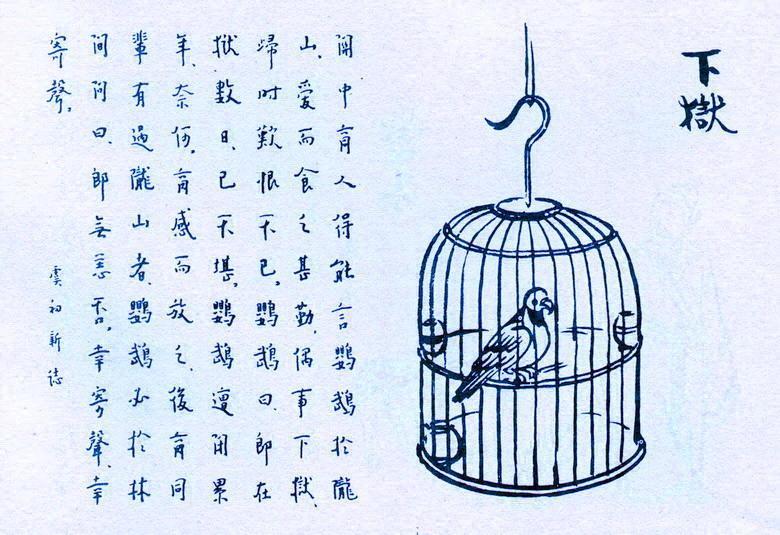 下獄
關中商人得能言鸚鵡於隴
山、愛而食之甚勤、偶事下獄、
歸時歎恨不已。鸚鵡曰、郎在
獄數日、已不堪。鸚鵡遭閉累
年、奈何。商感而放之、後商同
輩有過隴山者、鸚鵡必於林
間問曰、郎無恙否。幸寄聲、幸
寄聲。
虞初新誌